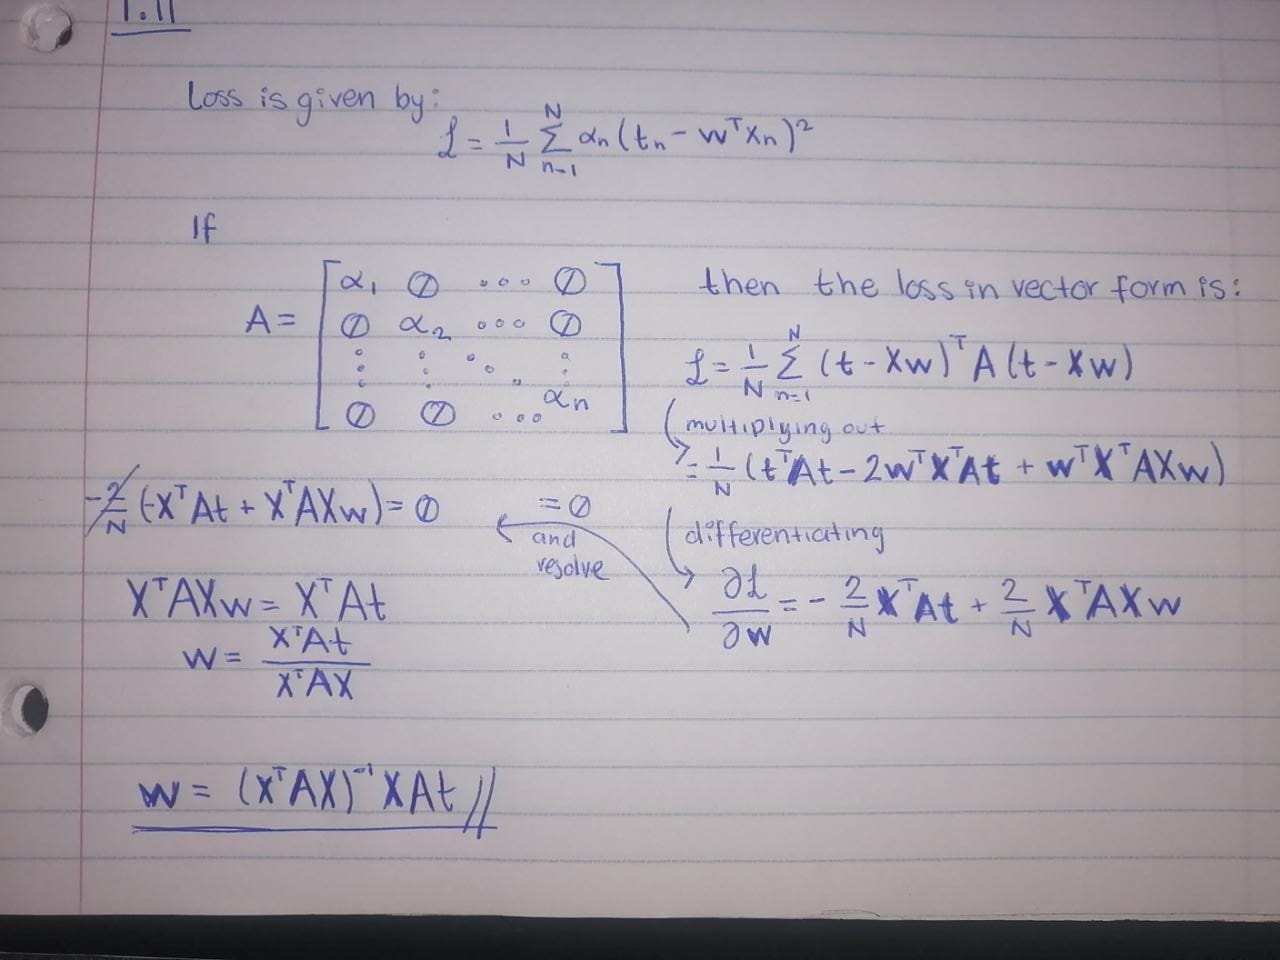 1.11
Loss is given by:
ℒ = 1/N Σ_{n=1}^{N} αₙ(tₙ - wᵀxₙ)²
If
A = [α₁ 0 ... 0
0 α₂ ... 0
⋮ ⋮ ⋱ ⋮
0 0 ... αn]
then the loss in vector form is:
ℒ = 1/N Σ_{n=1}^{N} (t - Xw)ᵀA(t - Xw)
multiplying out
= 1/N (tᵀAt - 2wᵀXᵀAt + wᵀXᵀAXw)
differentiating
∂ℒ/∂w = - 2/N XᵀAt + 2/N XᵀAXw
= 0
and
resolve
-2/N (-XᵀAt + XᵀAXw) = 0
XᵀAXw = XᵀAt
w = XᵀAt / XᵀAX
w = (XᵀAX)⁻¹XAt //